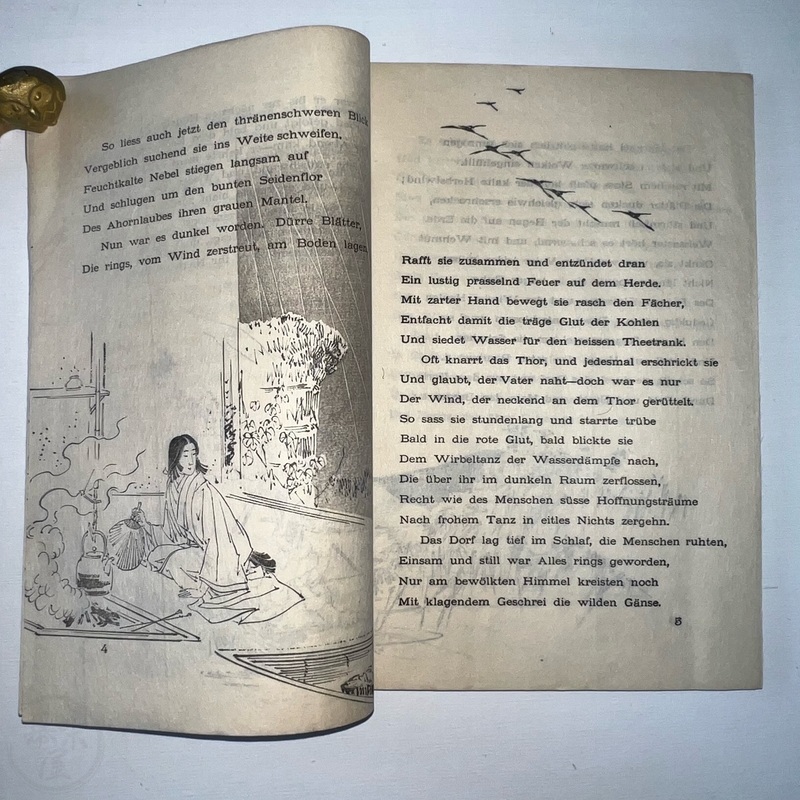 So liess auch jetzt den thränenschweren Blick
Vergeblich suchend sie ins Weite schweifen.
Feuchtkalte Nebel stiegen langsam auf
Und schlugen um den bunten Seidenflor
Des Ahornlaubes ihren grauen Mantel.
Nun war es dunkel worden. Dürre Blätter,
Die rings, vom Wind zerstreut, am Boden lagen,
4
Rafft sie zusammen und entzündet dran
Ein lustig prasselnd Feuer auf dem Herde.
Mit zarter Hand bewegt sie rasch den Fächer,
Entfacht damit die träge Glut der Kohlen
Und siedet Wasser für den heissen Theetrank.
Oft knarrt das Thor, und jedesmal erschrickt sie
Und glaubt, der Vater naht—doch war es nur
Der Wind, der neckend an dem Thor gerüttelt.
So sass sie stundenlang und starrte trübe
Bald in die rote Glut, bald blickte sie
Dem Wirbeltanz der Wasserdämpfe nach,
Die über ihr im dunkeln Raum zerflossen,
Recht wie des Menschen süsse Hoffnungsträume
Nach frohem Tanz in eitles Nichts zergehn.
Das Dorf lag tief im Schlaf, die Menschen ruhten,
Einsam und still war Alles rings geworden,
Nur am bewölkten Himmel kreisten noch
Mit klagendem Geschrei die wilden Gänse.
5